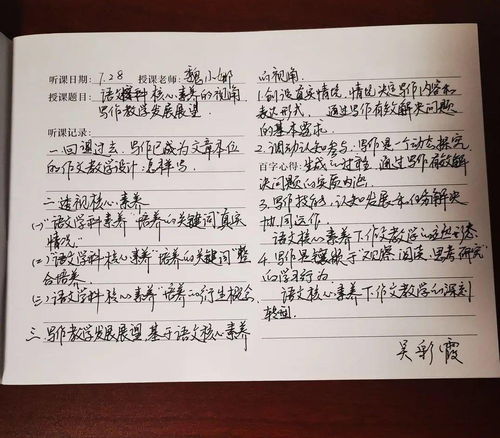 听课日期: 7.28 授课老师: 魏小娜
授课题目: 语文学科核心素养的视角
写作教学发展展望
听课记录:
一.回望过去,写作已成为文章本位
的作文教学设计:怎样写
二.透视核心素养
(一)"语文学科素养"培养的关键词"真实
情境"
(二)"语文学科核心素养"培养的关键词"整
合培养"
(三)"语文学科核心素养"培养的衍生概念
三.写作教学发展展望 基于语文核心素养
的视角
1.创设真实情境,情境决定写作内容和
表达形式,通过写作有效解决问题
的基本要求.
2.调动认知参与,写作是一个动态探究
百字心得:生成的过程,通过写作有效解
决问题的实质内涵
3.写作技能,认知发展和任务解决
协同运作
语文核心素养下作文教学的应然状态
4.写作是提升于"观察 阅读,思考研究"
的学习行为
语文核心素养下作文教学的深刻
转型.
吴彩霞